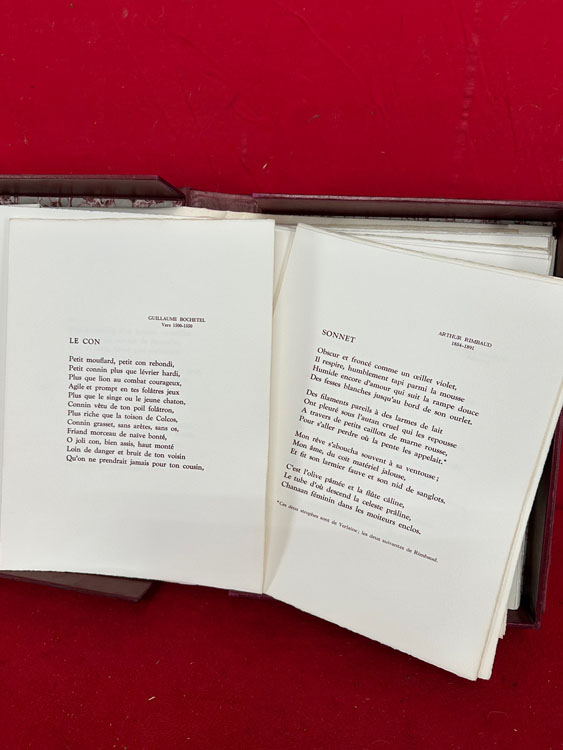 GUILLAUME BOCHETEL
Vers 1500-1550
LE CON
Petit mouflard, petit con rebondi,
Petit connin plus que lévrier hardi,
Plus que lion au combat courageux,
Agile et prompt en tes folâtres jeux
Plus que le singe ou le jeune chaton,
Connin vêtu de ton poil folâtron,
Plus riche que la toison de Colcos,
Connin grasset, sans arêtes, sans os,
Friand morceau de naïve bonté,
O joli con, bien assis, haut monté
Loin de danger et bruit de ton voisin
Qu'on ne prendrait jamais pour ton cousin,
ARTHUR RIMBAUD
1854-1891
SONNET
Obscur et froncé comme un œillet violet,
Il respire, humblement tapi parmi la mousse
Humide encore d'amour qui suit la rampe douce
Des fesses blanches jusqu'au bord de son ourlet.
Des filaments pareils à des larmes de lait
Ont pleuré sous l'autan cruel qui les repousse
A travers de petits caillots de marne rousse,
Pour s'aller perdre où la pente les appelait.*
Mon rêve s'aboucha souvent à sa ventouse ;
Mon âme, du coït matériel jalouse,
Et fit son larmier fauve et son nid de sanglots.
C'est l'olive pâmée et la flûte câline,
Le tube d'où descend la celeste prâline,
Chanaan féminin dans les moiteurs enclos.
*Ces deux strophes sont de Verlaine ; les deux suivantes de Rimbaud.